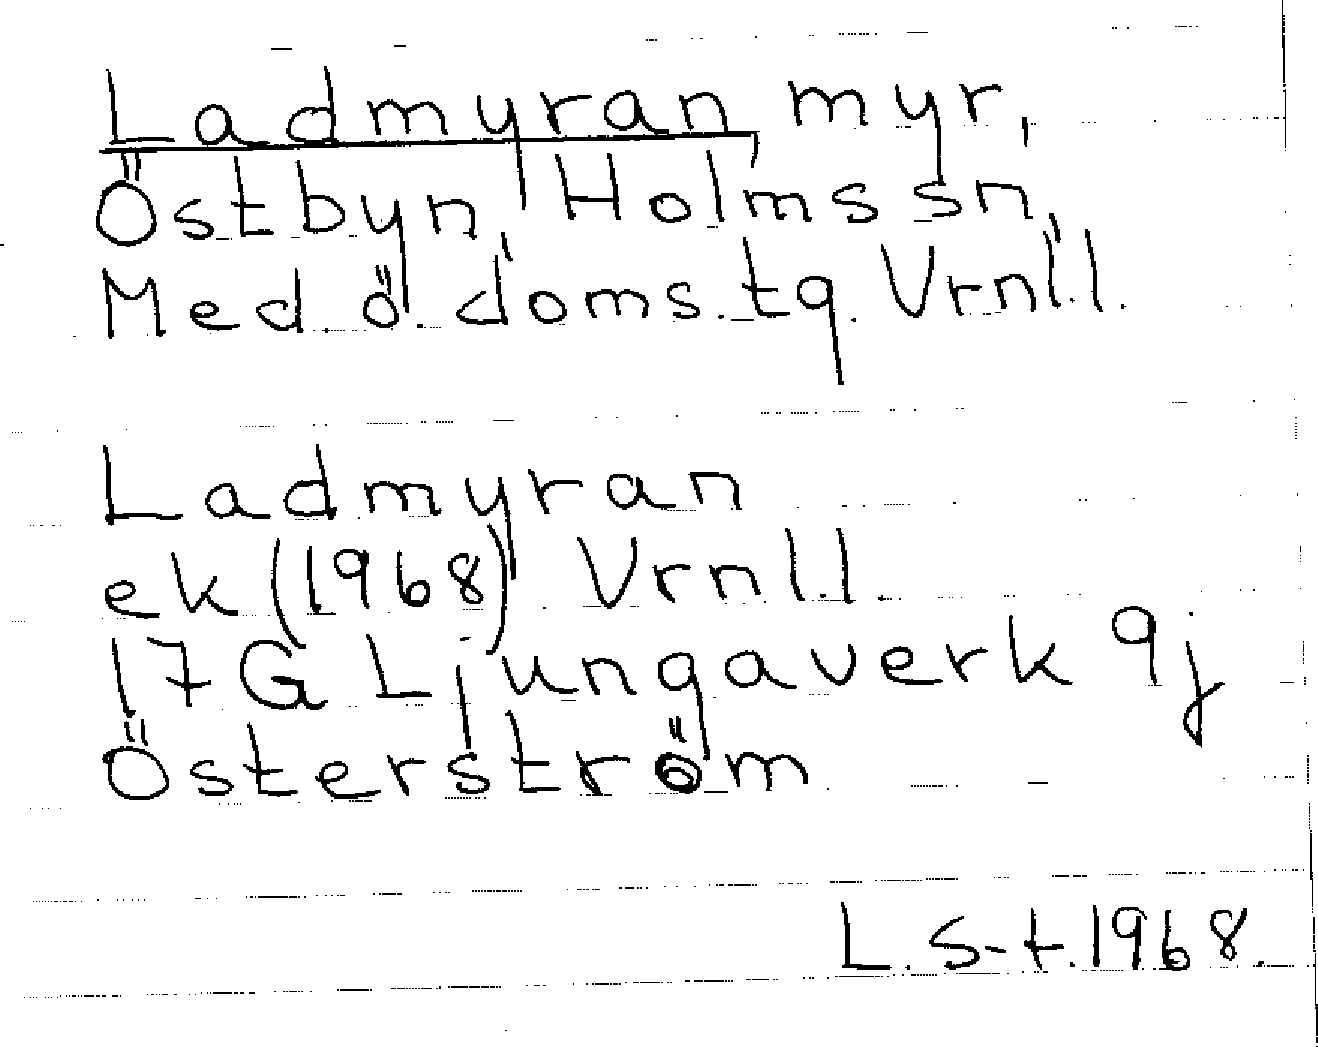 Ladmyran, myr,
Östbyn, Holms sn,
Med.ö. doms.tg. Vrnl.l.
Ladmyran
ek (1968) Vrnl.l.
17G Ljungaverk 9j
Österström
L. S-t. 1968.